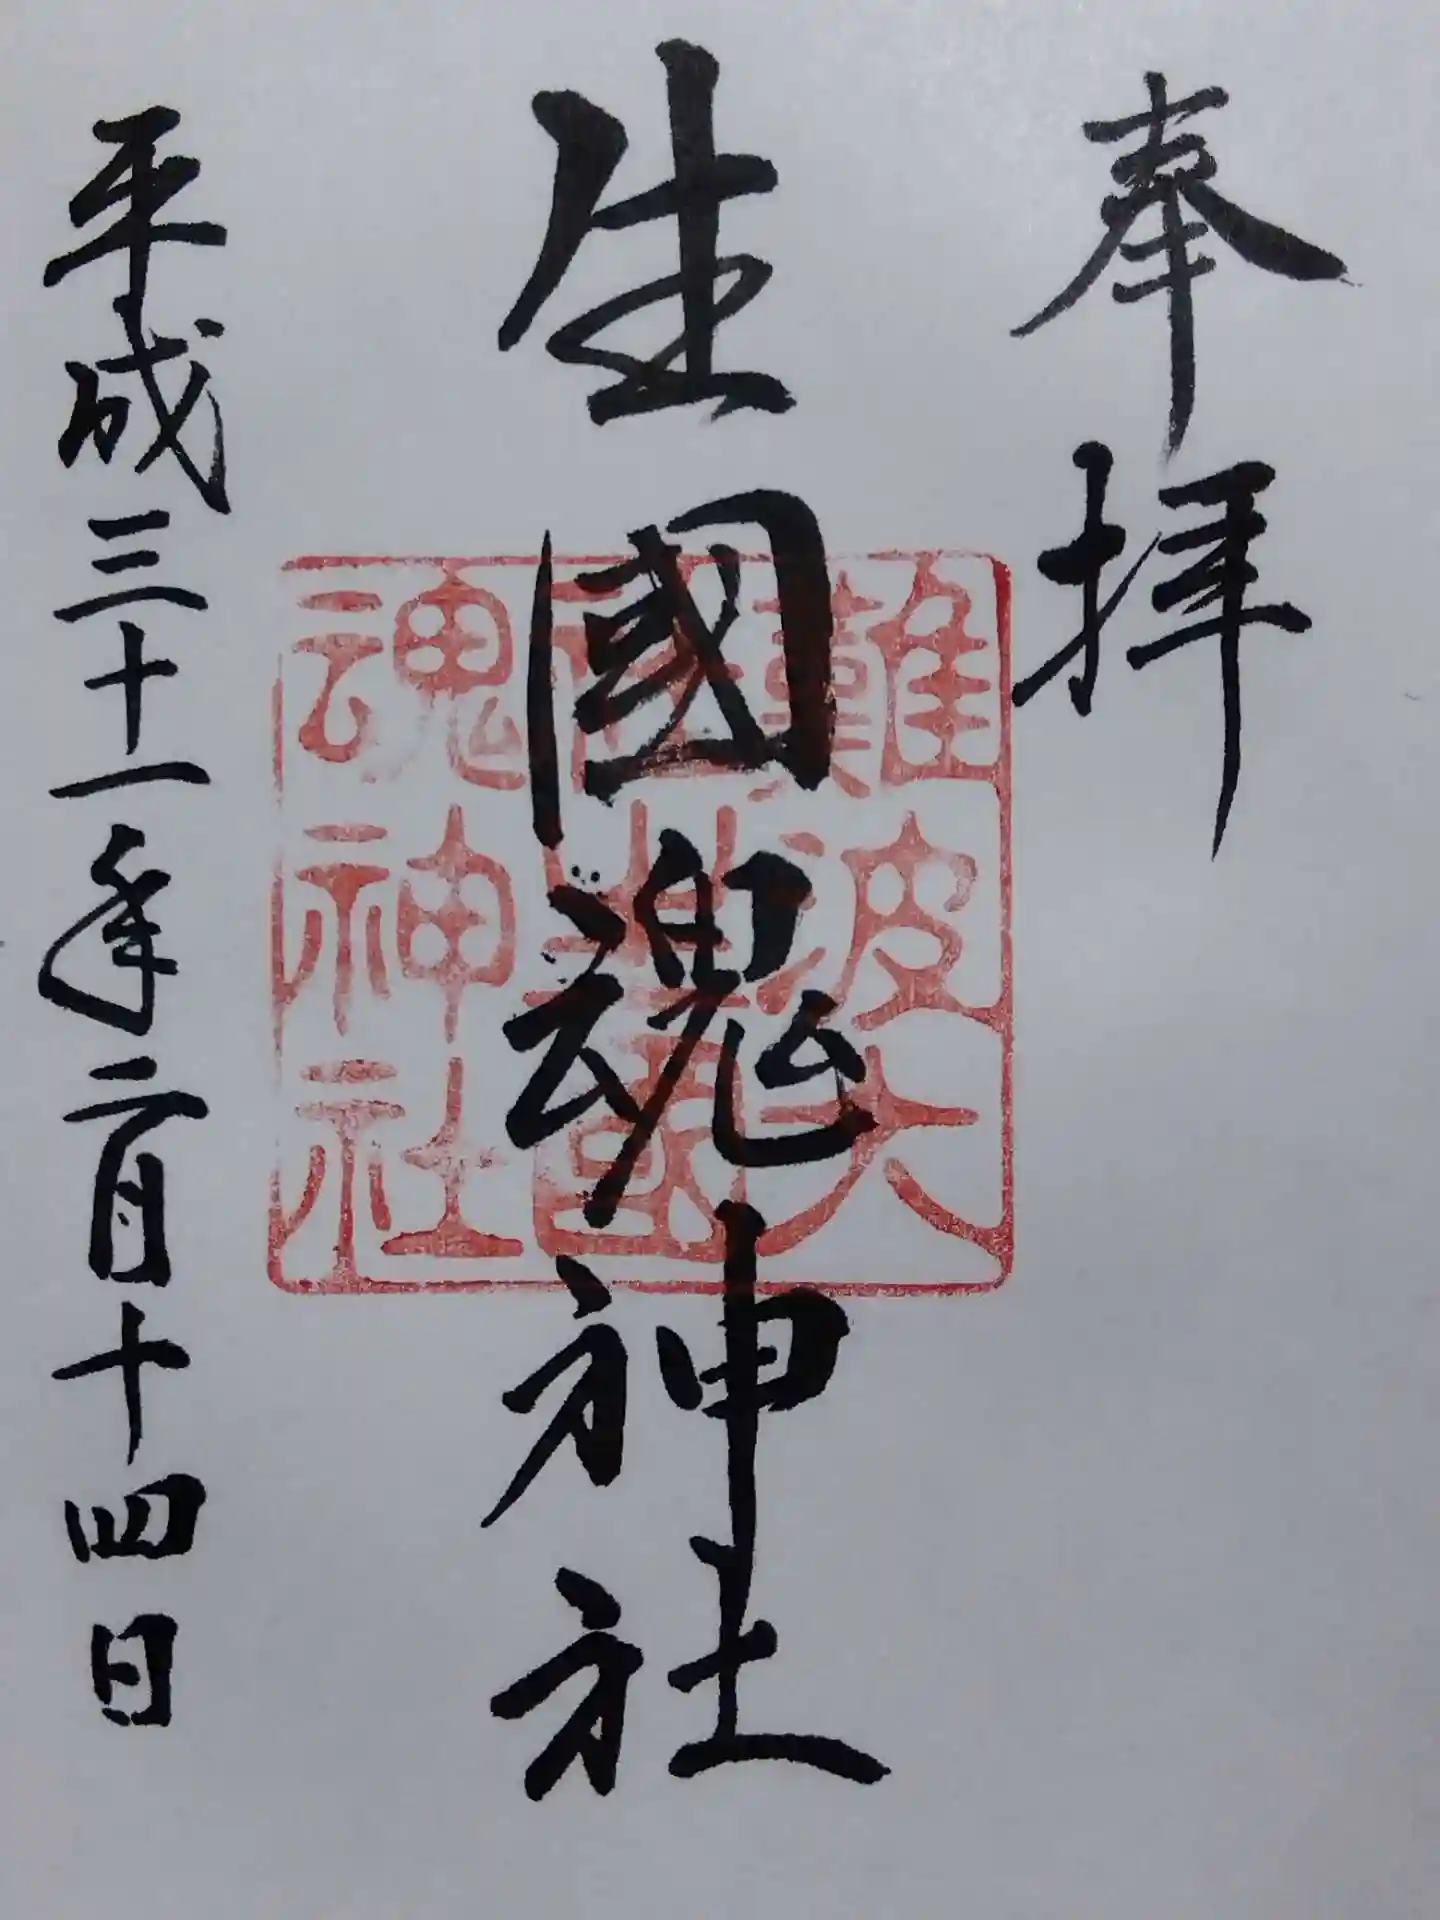 奉拝
生國魂神社
難波大
社生國
魂神社
平成三十一年二月十四日